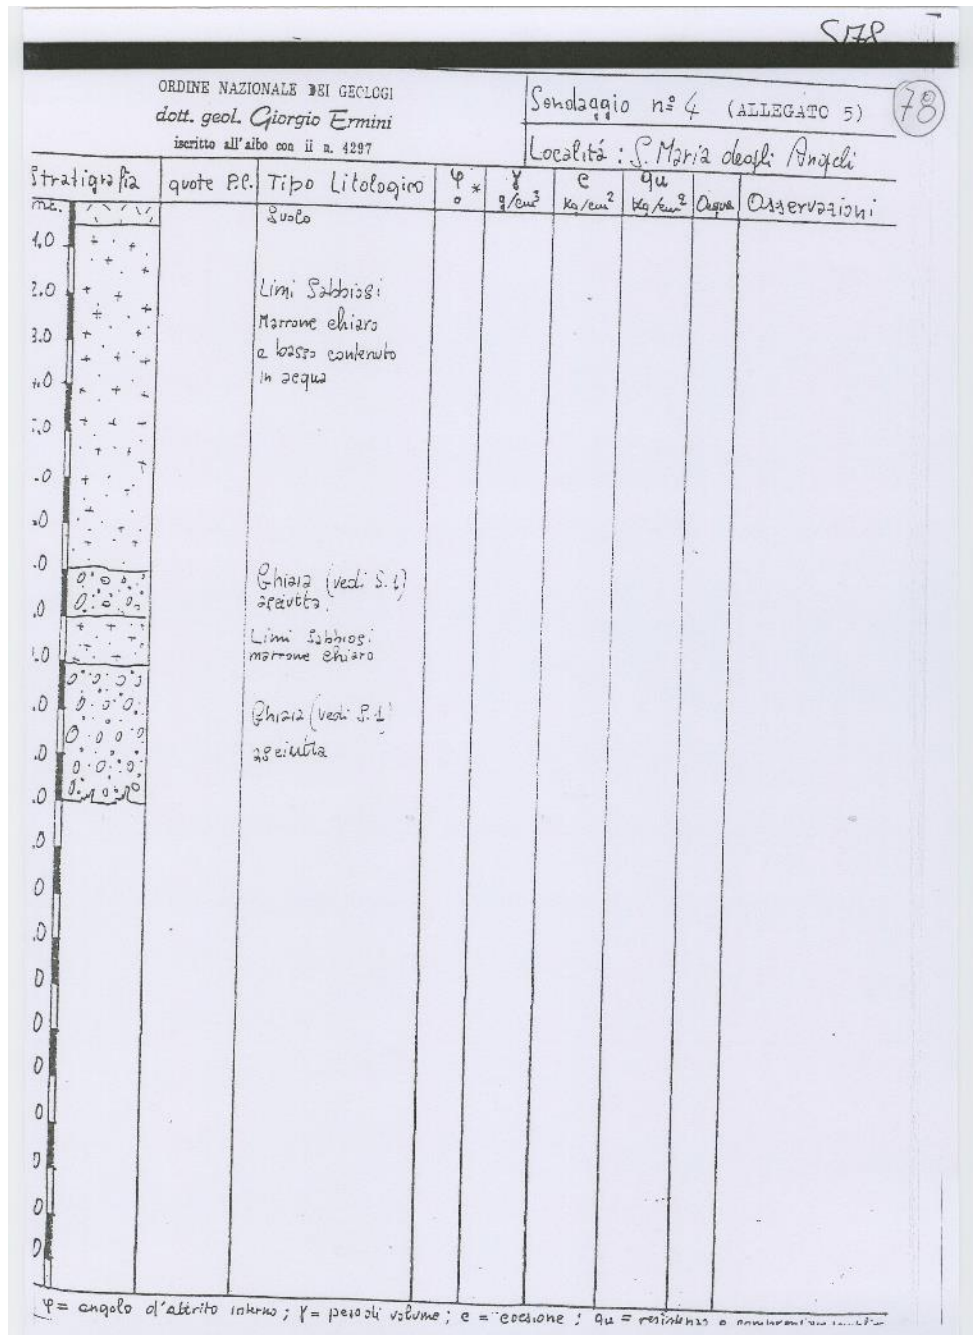 S178
ORDINE NAZIONALE DEI GEOLOGI
dott. geol. Giorgio Ermini
iscritto all'albo con il n. 4297
Sondaggio n° 4 (ALLEGATO 5)
78
Località: S. Maria degli Angeli
Stratigrafia quote P.C. Tipo Litologico φ° * γ g/cm³ c Kg/cm² qu Kg/cm² Acqua Osservazioni
mt.
Suolo
1,0
2.0 Limi Sabbiosi
Marrone chiaro
3.0
a basso contenuto
4,0 in acqua
,0
.0
,0
.0
Ghiaia (vedi S.1)
,0 asciutta
Limi Sabbiosi
.0 marrone chiaro
.0 Ghiaia (vedi S.1)
.0 asciutta
.0
.0
0
.0
0
0
0
0
0
0
0
φ = angolo d'attrito interno; γ = peso di volume; c = coesione; qu = resistenza a compressione